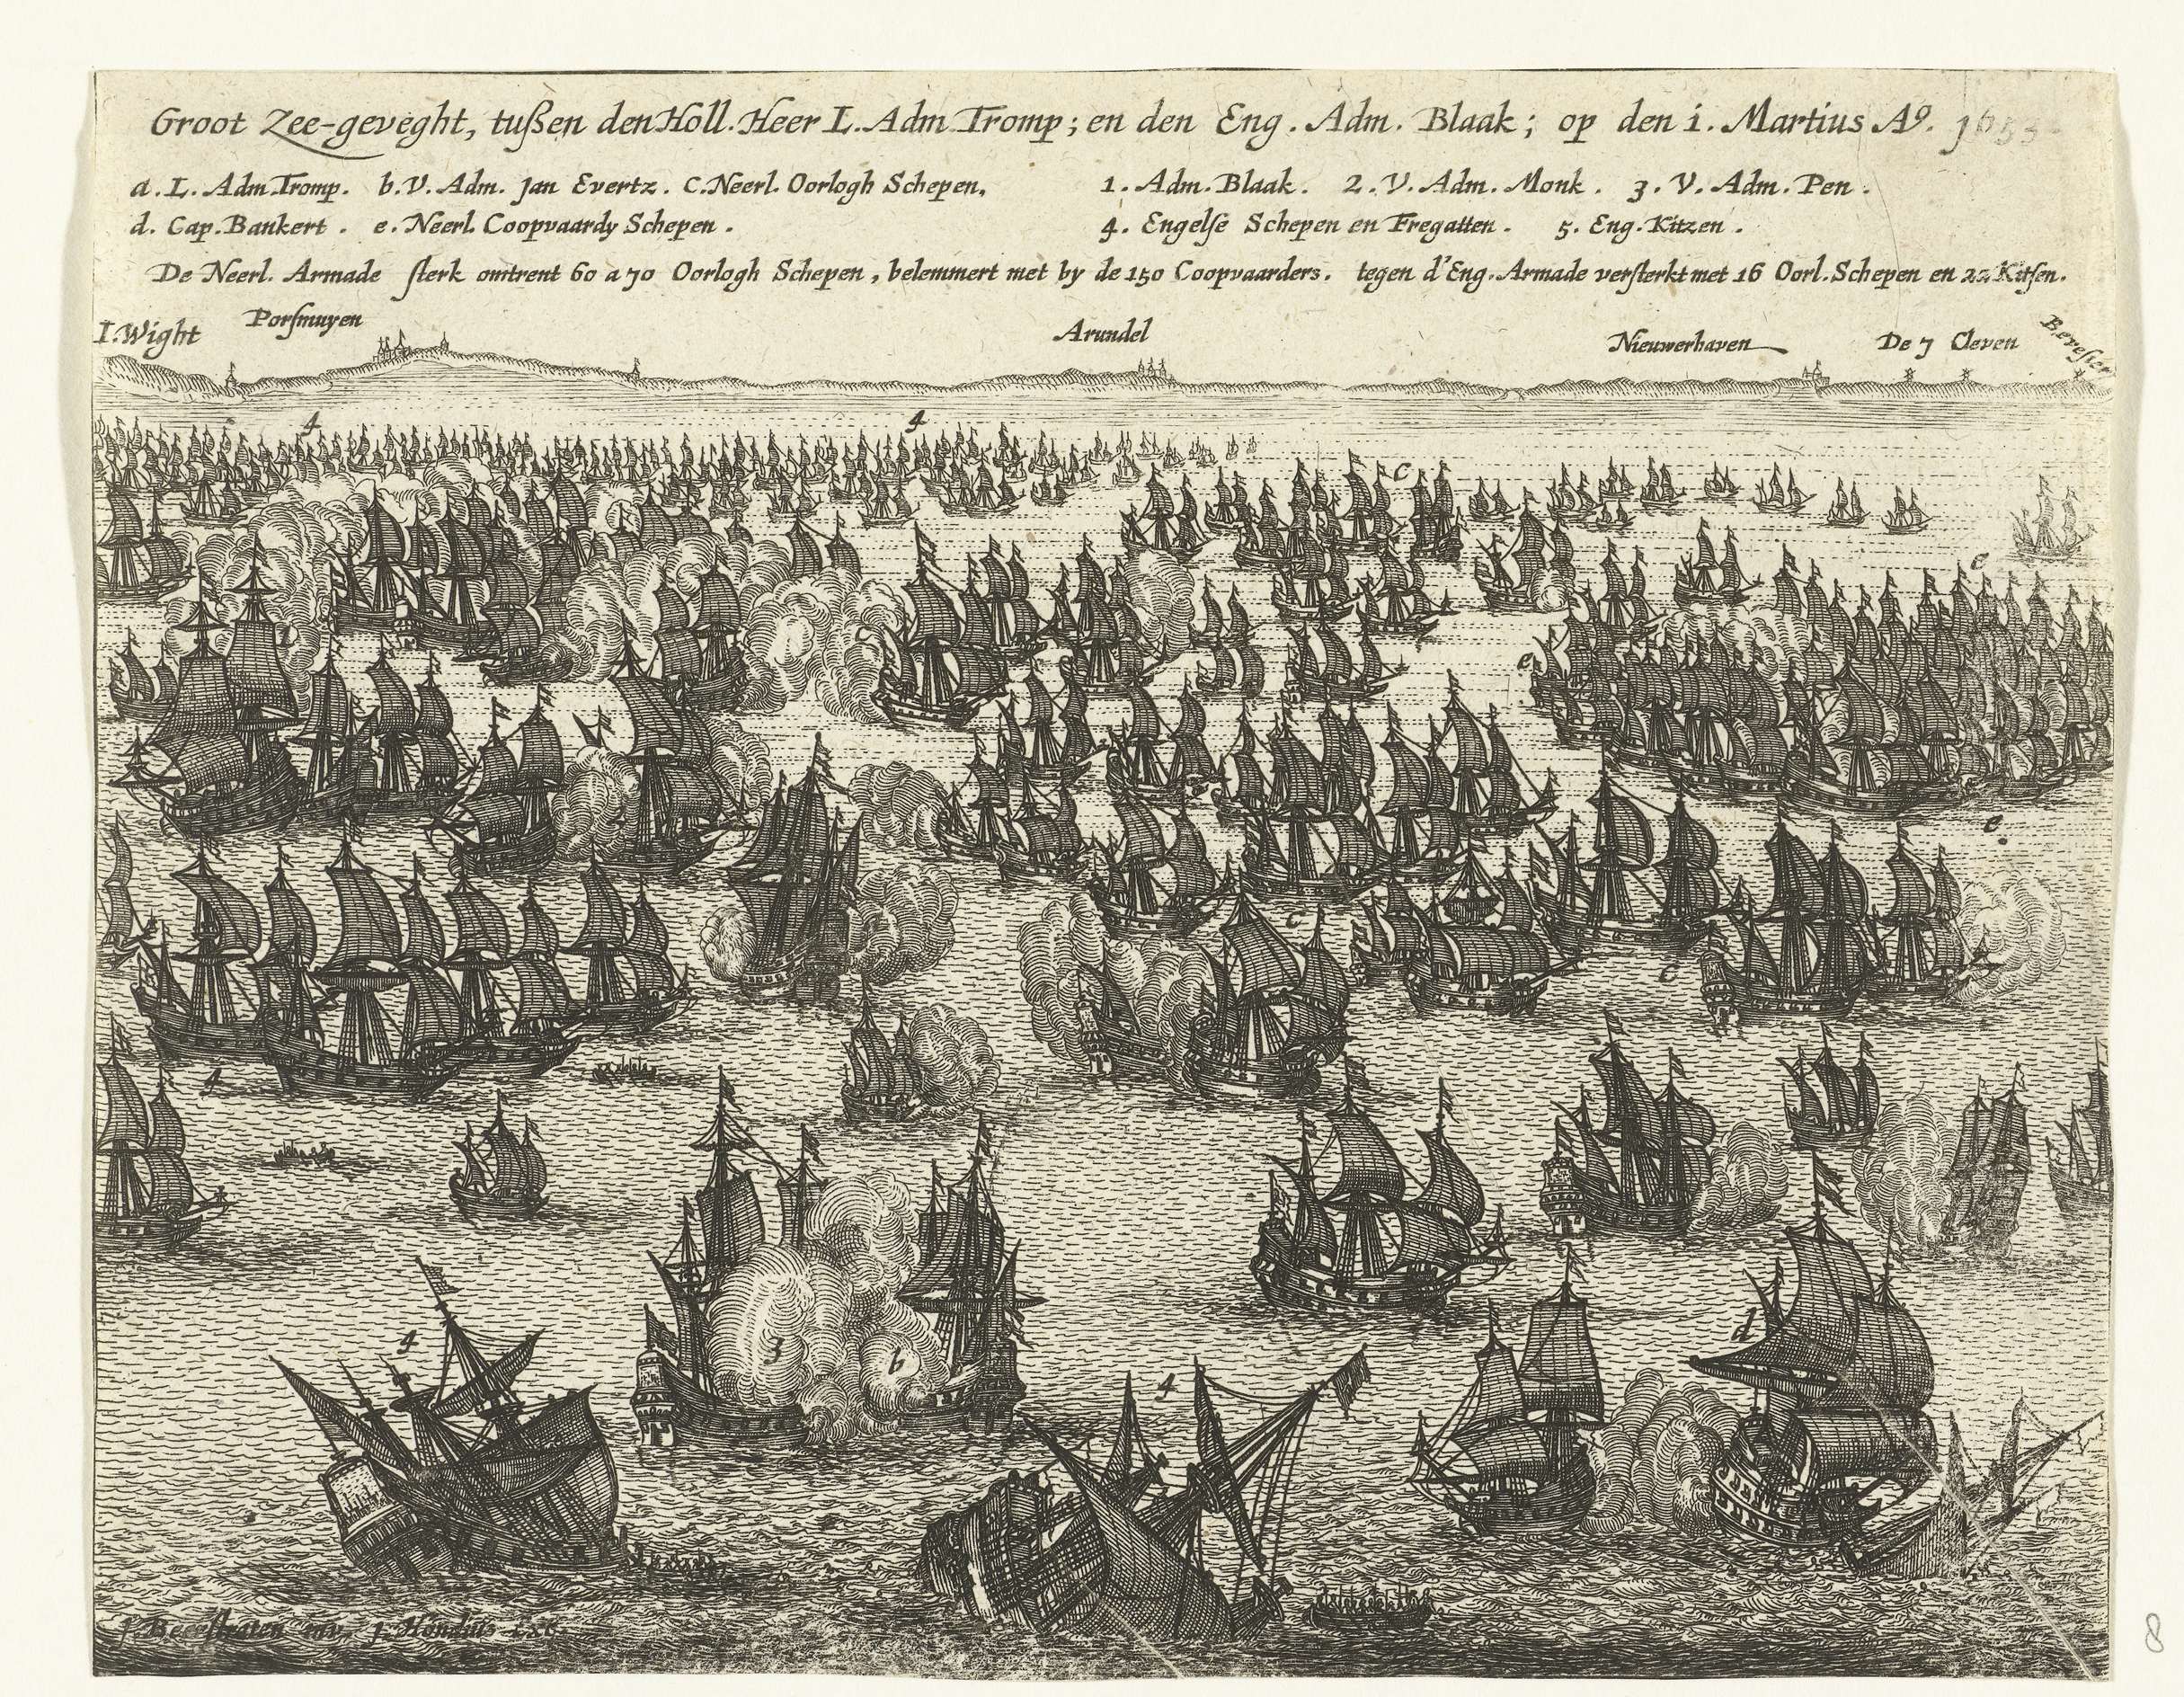 Groot Zee-geveght, tußen den Holl. Heer L. Adm. Tromp; en den Eng. Adm. Blaak; op den i. Martius Aº. 1653
a. L. Adm. Tromp. b. V. Adm. Jan Evertz. C. Neerl. Oorlogh Schepen,
d. Cap. Bankert. e. Neerl. Coopvaardy Schepen.
1. Adm. Blaak. 2. V. Adm. Monk. 3. V. Adm. Pen.
4. Engelse Schepen en Fregatten. 5. Eng. Kitzen.
De Neerl. Armade sterk omtrent 60 a 70 Oorlogh Schepen, belemmert met by de 150 Coopvaarders. tegen d'Eng. Armade versterkt met 16 Oorl. Schepen en 22 Kitsen.
I. Wight Porsmuyen Arundel Nieuwerhaven De 7 Cleven Bevesier
4 4 C
e
e
e
c
c
4
4 3 b 4 d
J Beerstraten inv. J. Hondius exc.
8